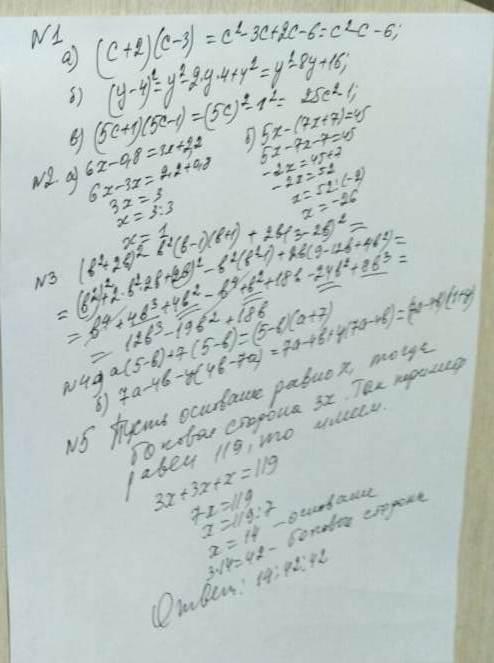 N1
а) (с+2)(с-3) = с²-3с+2с-6=с²-с-6;
б) (y-4)²=y²-2·y·4+4²=y²-8y+16;
в) (5с+1)(5с-1)=(5с)²-1²= 25с²-1;
N2. а) 6x-0,8=3x+2,2
6x-3x=2,2+0,8
3x=3
x=3:3
x=1
б) 5x-(7x+7)=45
5x-7x-7=45
-2x=45+7
-2x=52
x=52:(-2)
x=-26
N3 (b²+2b)²-b²(b-1)(b+1)+2b(3-2b)²=
=(b²)²+2·b²·2b+(2b)²-b²(b²-1)+2b(9-12b+4b²)=
=b⁴+4b³+4b²-b⁴+b²+18b-24b²+8b³=
= 12b³-19b²+18b
N4 а) а(5-b)+7(5-b)=(5-b)(а+7)
б) 7а-4b-y(4b-7а)=7а-4b+y(7а-4b)=(7а-4b)(1+y)
N5 Пусть основание равно x, тогда
боковая сторона 3x. Так периметр
равен 119, то имеем.
3x+3x+x=119
7x=119
x=119:7
x=14 - основание
3·14=42 - боковая сторона
Ответ: 14; 42; 42